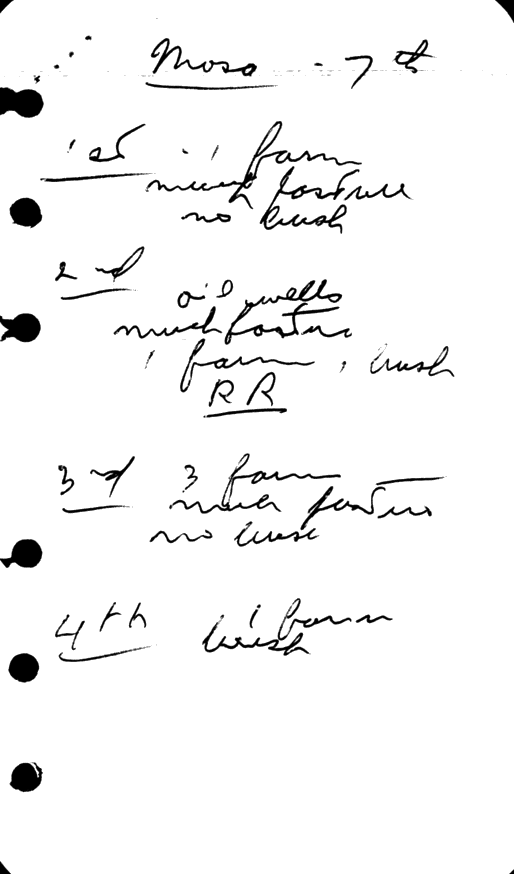 Mosa - 7th
1st - 1 farm
much pasture
no brush
2nd
oil wells
much pasture
1 farm, brush
RR
3rd 3 farm
much pasture
no brush
4th 1 farm
brush